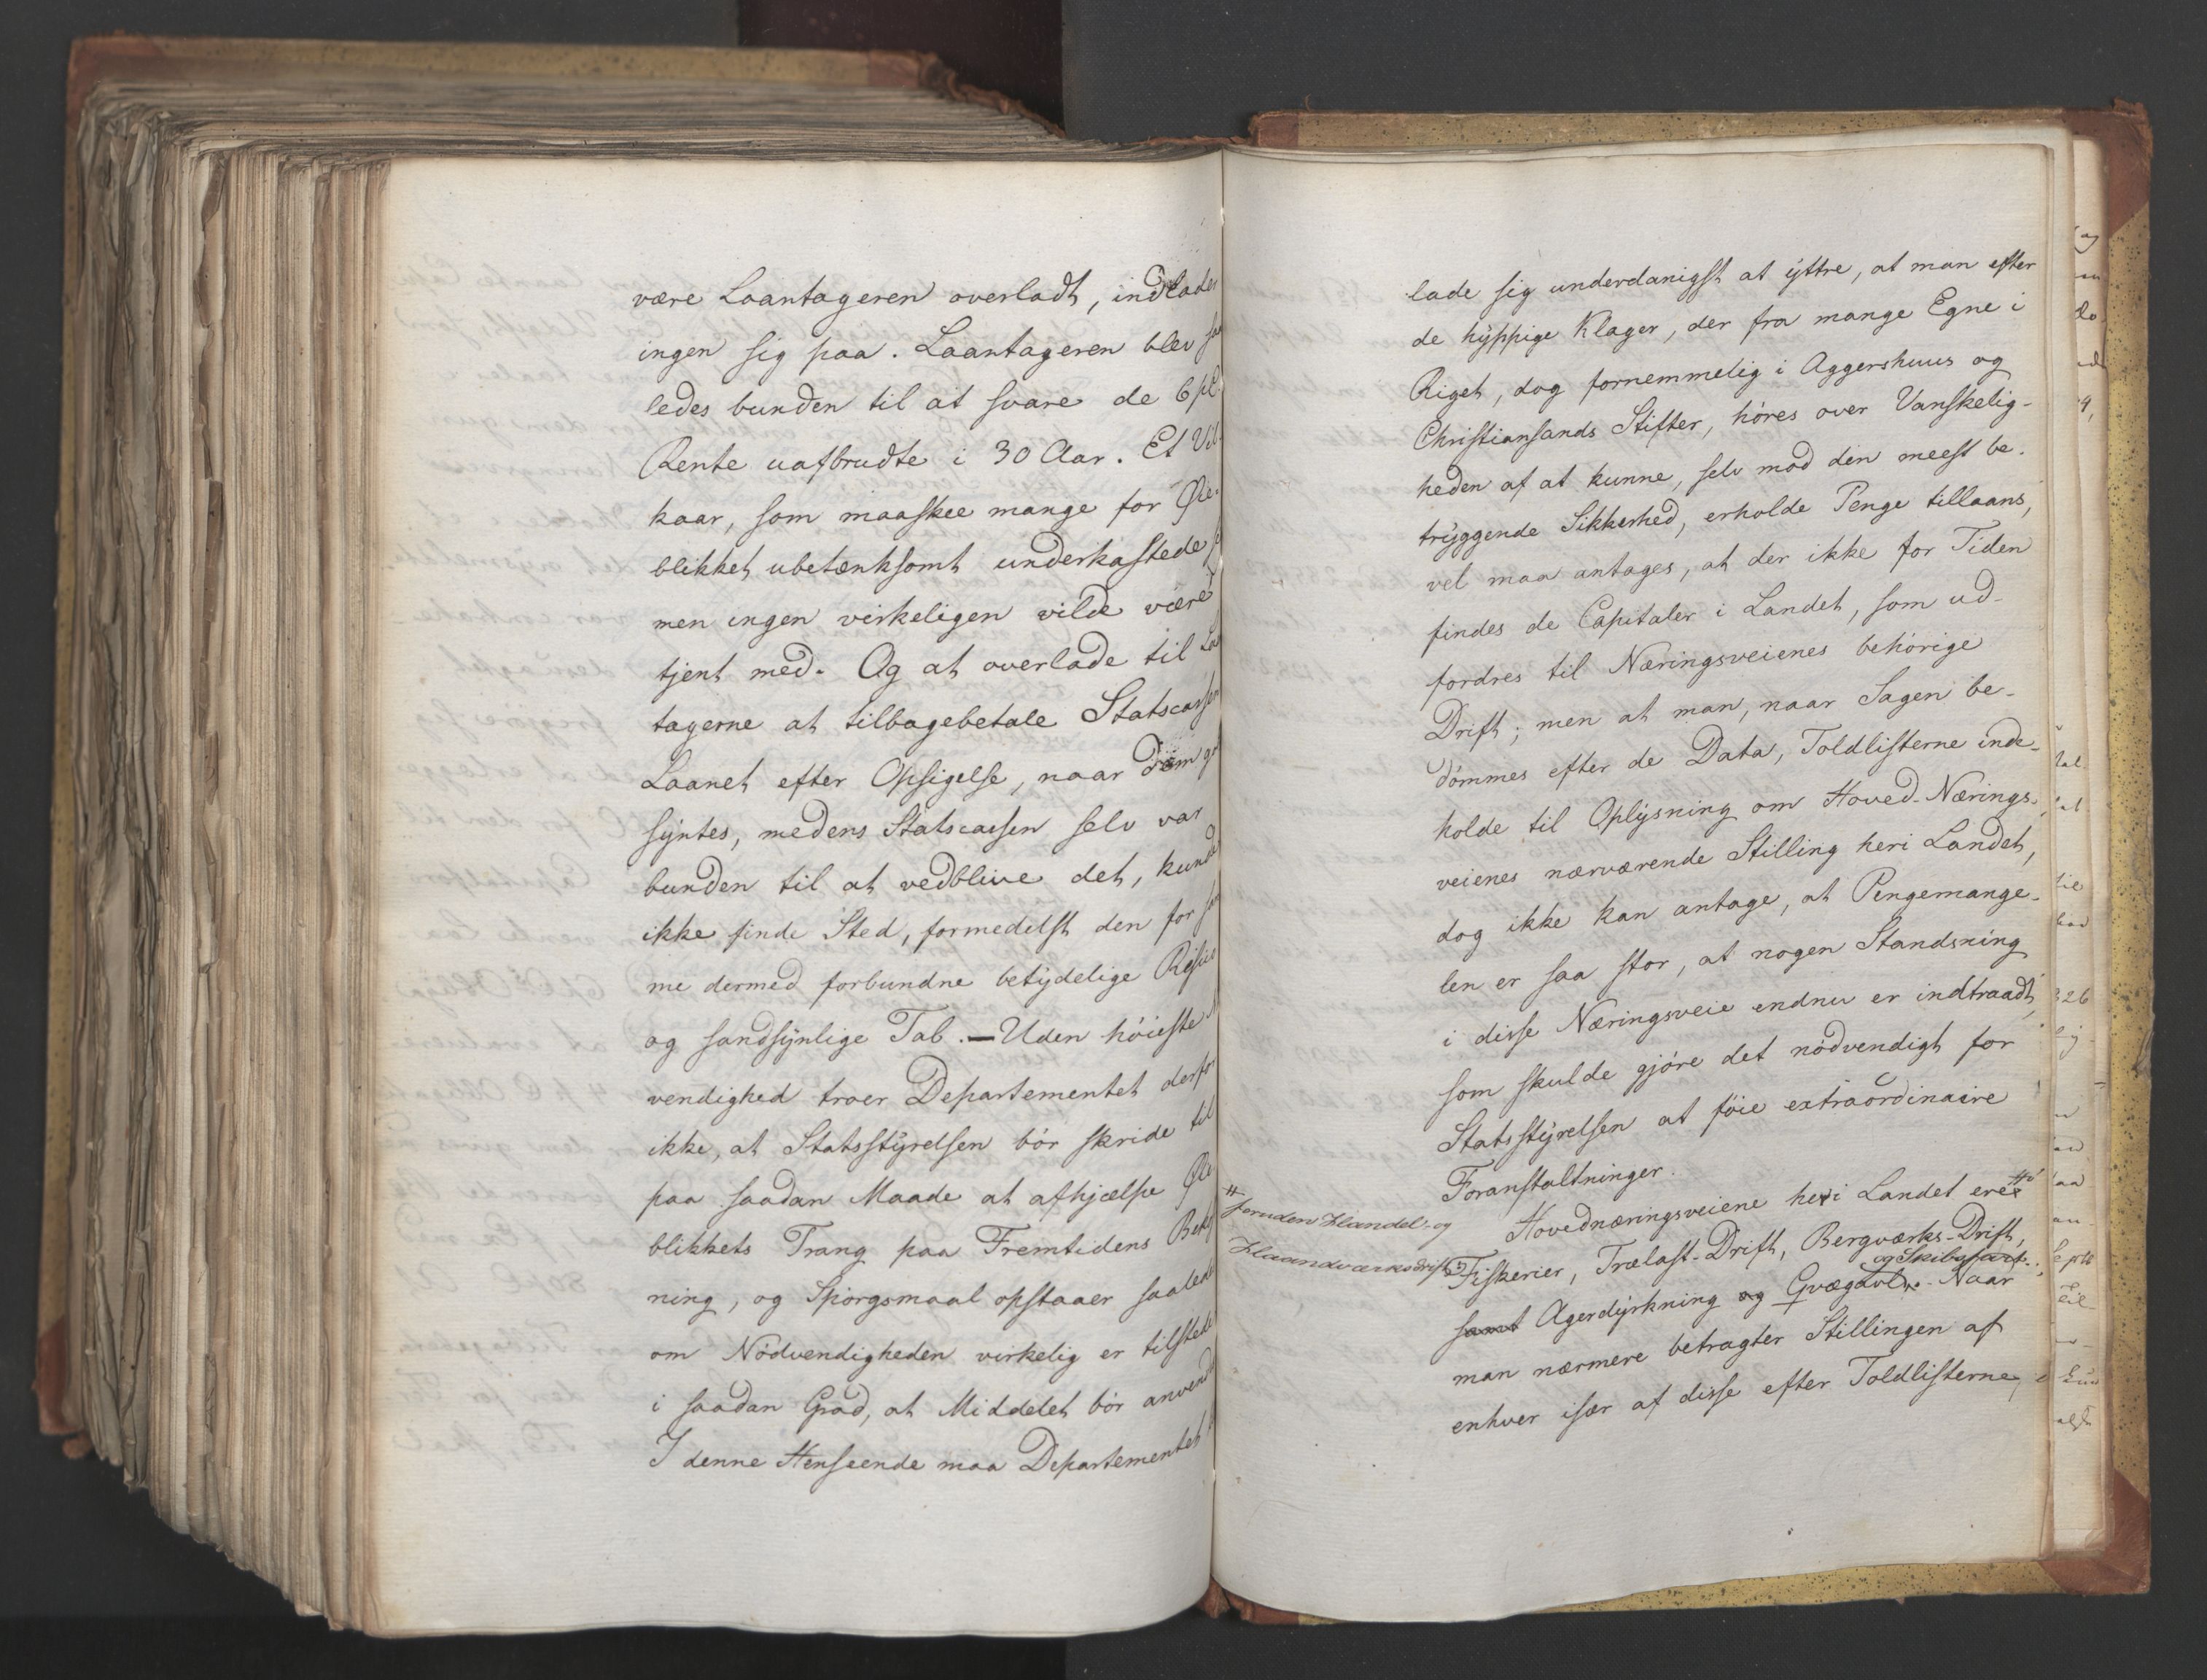 være Laantageren overladt, indlader
ingen sig paa. Laantageren blev saa
ledes bunden til at svare de 6 pC
Rente uafbrudte i 30 Aar. Et Vil-
kaar, som maaskee mange for Øie-
blikket ubetænksomt underkastede
men ingen virkeligen vilde være
tjent med. Og at overlade til Laa
tagerne at tilbagebetale Statscassen
Laanet efter Opsigelse, naar dem
syntes, medens Statscassen selv var
bunden til at vedblive det, kunde
ikke finde Sted, formedelst den for
me dermed forbundne betydelige Risico
og sandsynlige Tab. — Uden høieste
vendighed troer Departementet derfor
ikke, at Statsstyrelsen bør skride til
paa saadan Maade at afhjælpe Øie
blikkets Trang paa Fremtidens Bek
ning, og Spørgsmaal opstaaer saalede
om Nødvendigheden virkelig er tilstede
i saadan Grad, at Middelet bør anvend
I denne Henseende maa Departementet
lade sig underdanigst at yttre, at man efter
de hyppige Klager, der fra mange Egne i
Riget, dog fornemmelig i Aggershuus og
Christiansands Stifter, høres over Vanskelig-
heden af at kunne, selv mod den meest be-
tryggende Sikkerhed, erholde Penge tillaans,
vel maa antages, at der ikke for Tiden
findes de Capitaler i Landet, som ud-
fordres til Næringsveienes behørige
Drift; men at man, naar Sagen be-
dømmes efter de Data, Toldlisterne inde-
holde til Oplysning om Hoved-Nærings-
veienes nærværende Stilling heri Landet,
dog ikke kan antage, at Pengemange-
len er saa stor, at nogen Standsning
i disse Næringsveie endnu er indtraadt,
som skulde gjøre det nødvendigt for
Statsstyrelsen at føie extraordinaire
Foranstaltninger.
Hovednæringsveiene heri Landet ere #
# foruden Handel- og
Haandværksdrift
Fiskerier, Trælast-Drift, Bergværks-Drift,
og Skibsfart.
samt Agerdyrkning og Qvægavl. Naar
man nærmere betragter Stillingen af
enhver især af disse efter Toldlisterne,